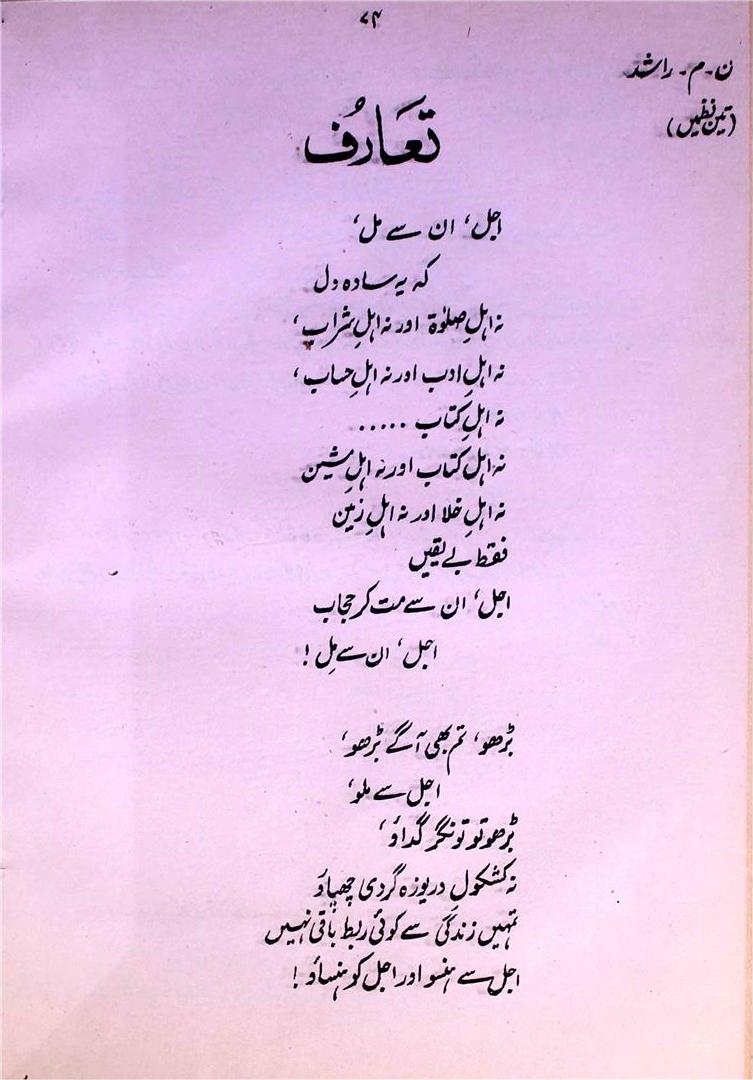 ۷۴
ن۔ م۔ راشد
(تین نظمیں)
تعَارُف
اجل، ان سے مل،
کہ یہ سادہ دل
نہ اہلِ صلوٰۃ اور نہ اہلِ شراب،
نہ اہلِ ادب اور نہ اہلِ حساب،
نہ اہلِ کتاب .....
نہ اہلِ کتاب اور نہ اہلِ مشین
نہ اہلِ خلا اور نہ اہلِ زمین
فقط بے یقیں
اجل، ان سے مت کر حجاب
اجل، ان سے مِل !
بڑھو، تم بھی آگے بڑھو،
اجل سے ملو،
بڑھو تو تونگر گداؤ،
نہ کشکولِ دریوزہ گردی چھپاؤ
تمہیں زندگی سے کوئی ربط باقی نہیں
اجل سے ہنسو اور اجل کو ہنساؤ !